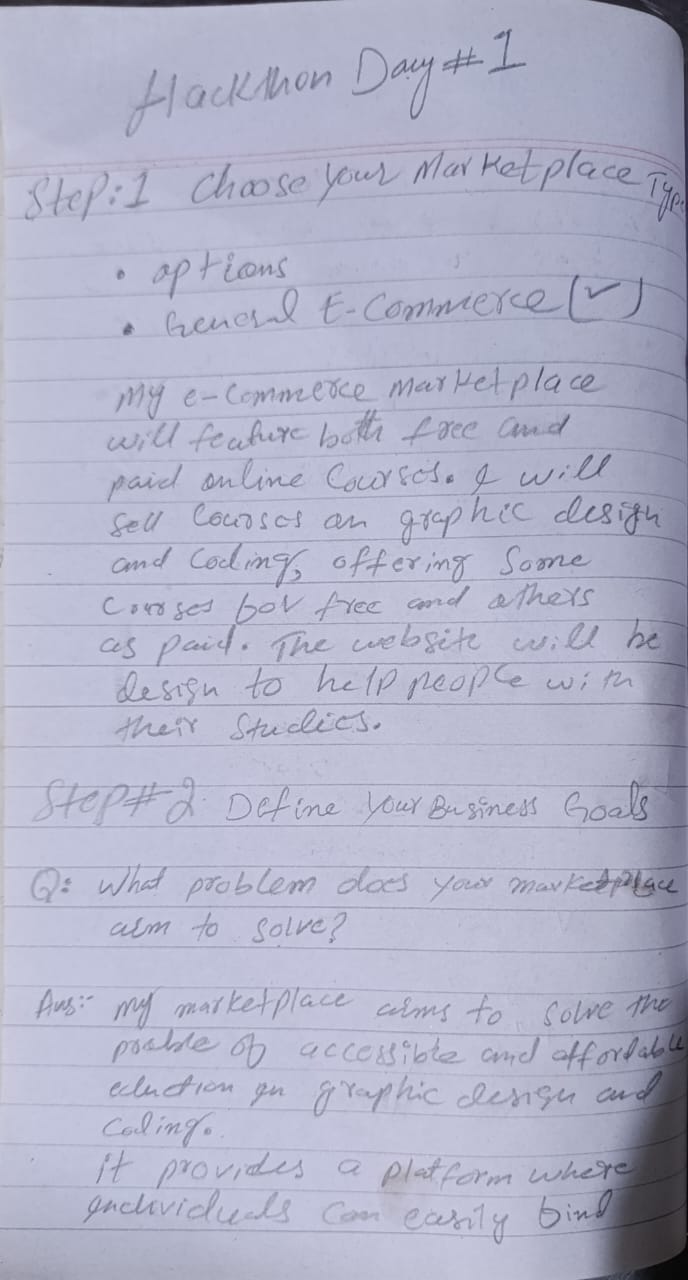 Hackthon Day#1
Step:1 Choose your Marketplace Type
• options
• General E-Commerce (✓)
My e-Commerce marketplace
will feature both free and
paid online Courses. I will
Sell Courses on graphic design
and Coding, offering Some
Courses for free and others
as paid. The website will be
design to help people with
their Studies.
Step#2 Define your Business Goals
Q: What problem does your marketplace
aim to solve?
Ans:- My marketplace aims to solve the
proble of accessible and affordable
eduction in graphic design and
Coding.
it provides a platform where
individuals can easily find